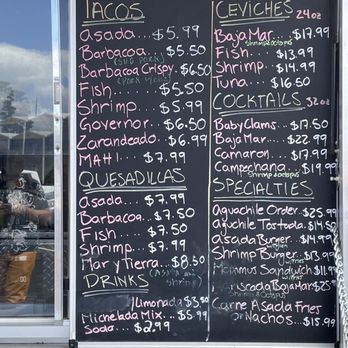 TACOS
Asada... $5.99
Barbacoa... $5.50
Barbacoa Crispy. $6.50
Fish..... $5.50
Shrimp... $5.99
Governor... $6.50
Zarandeado.. $6.99
MAHI... $7.99
QUESADILLAS
Asada... $7.99
Barbacoa.. $7.50
Fish..... $7.50
Shrimp.. $7.99
Mar y Tierra.. $8.50
(Asada and shrimp)
DRINKS
Limonada $3.50
Michelada Mix... $5.99
Soda... $2.99
CEVICHES 24oz
Baja Mar... $17.99
Shrimp & octopus
Fish... $13.99
Shrimp... $14.99
Tuna... $16.50
COCKTAILS 32oz
Baby Clams... $17.50
Baja Mar.... $22.99
Camaron... $17.99
Campechana.. $19.99
Shrimp & octopus
SPECIALTIES
Aguachile Order. $25.99
Aguachile Tostada. $14.50
Asada Burger
Shrimp Burger
Sandwich $11.99
Baja Mar $25
Shrimp & octopus
Carne Asada Fries
or Nachos... $15.99